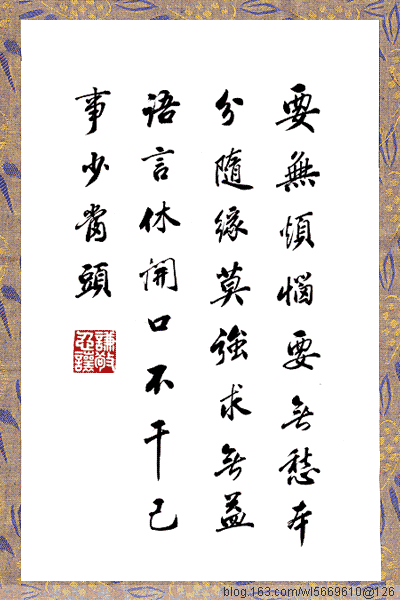 要無煩惱要无愁本
分隨緣莫強求无益
語言休開口不干己
事少當頭
謙敬
忍讓
blog.163.com/wl5669610@126